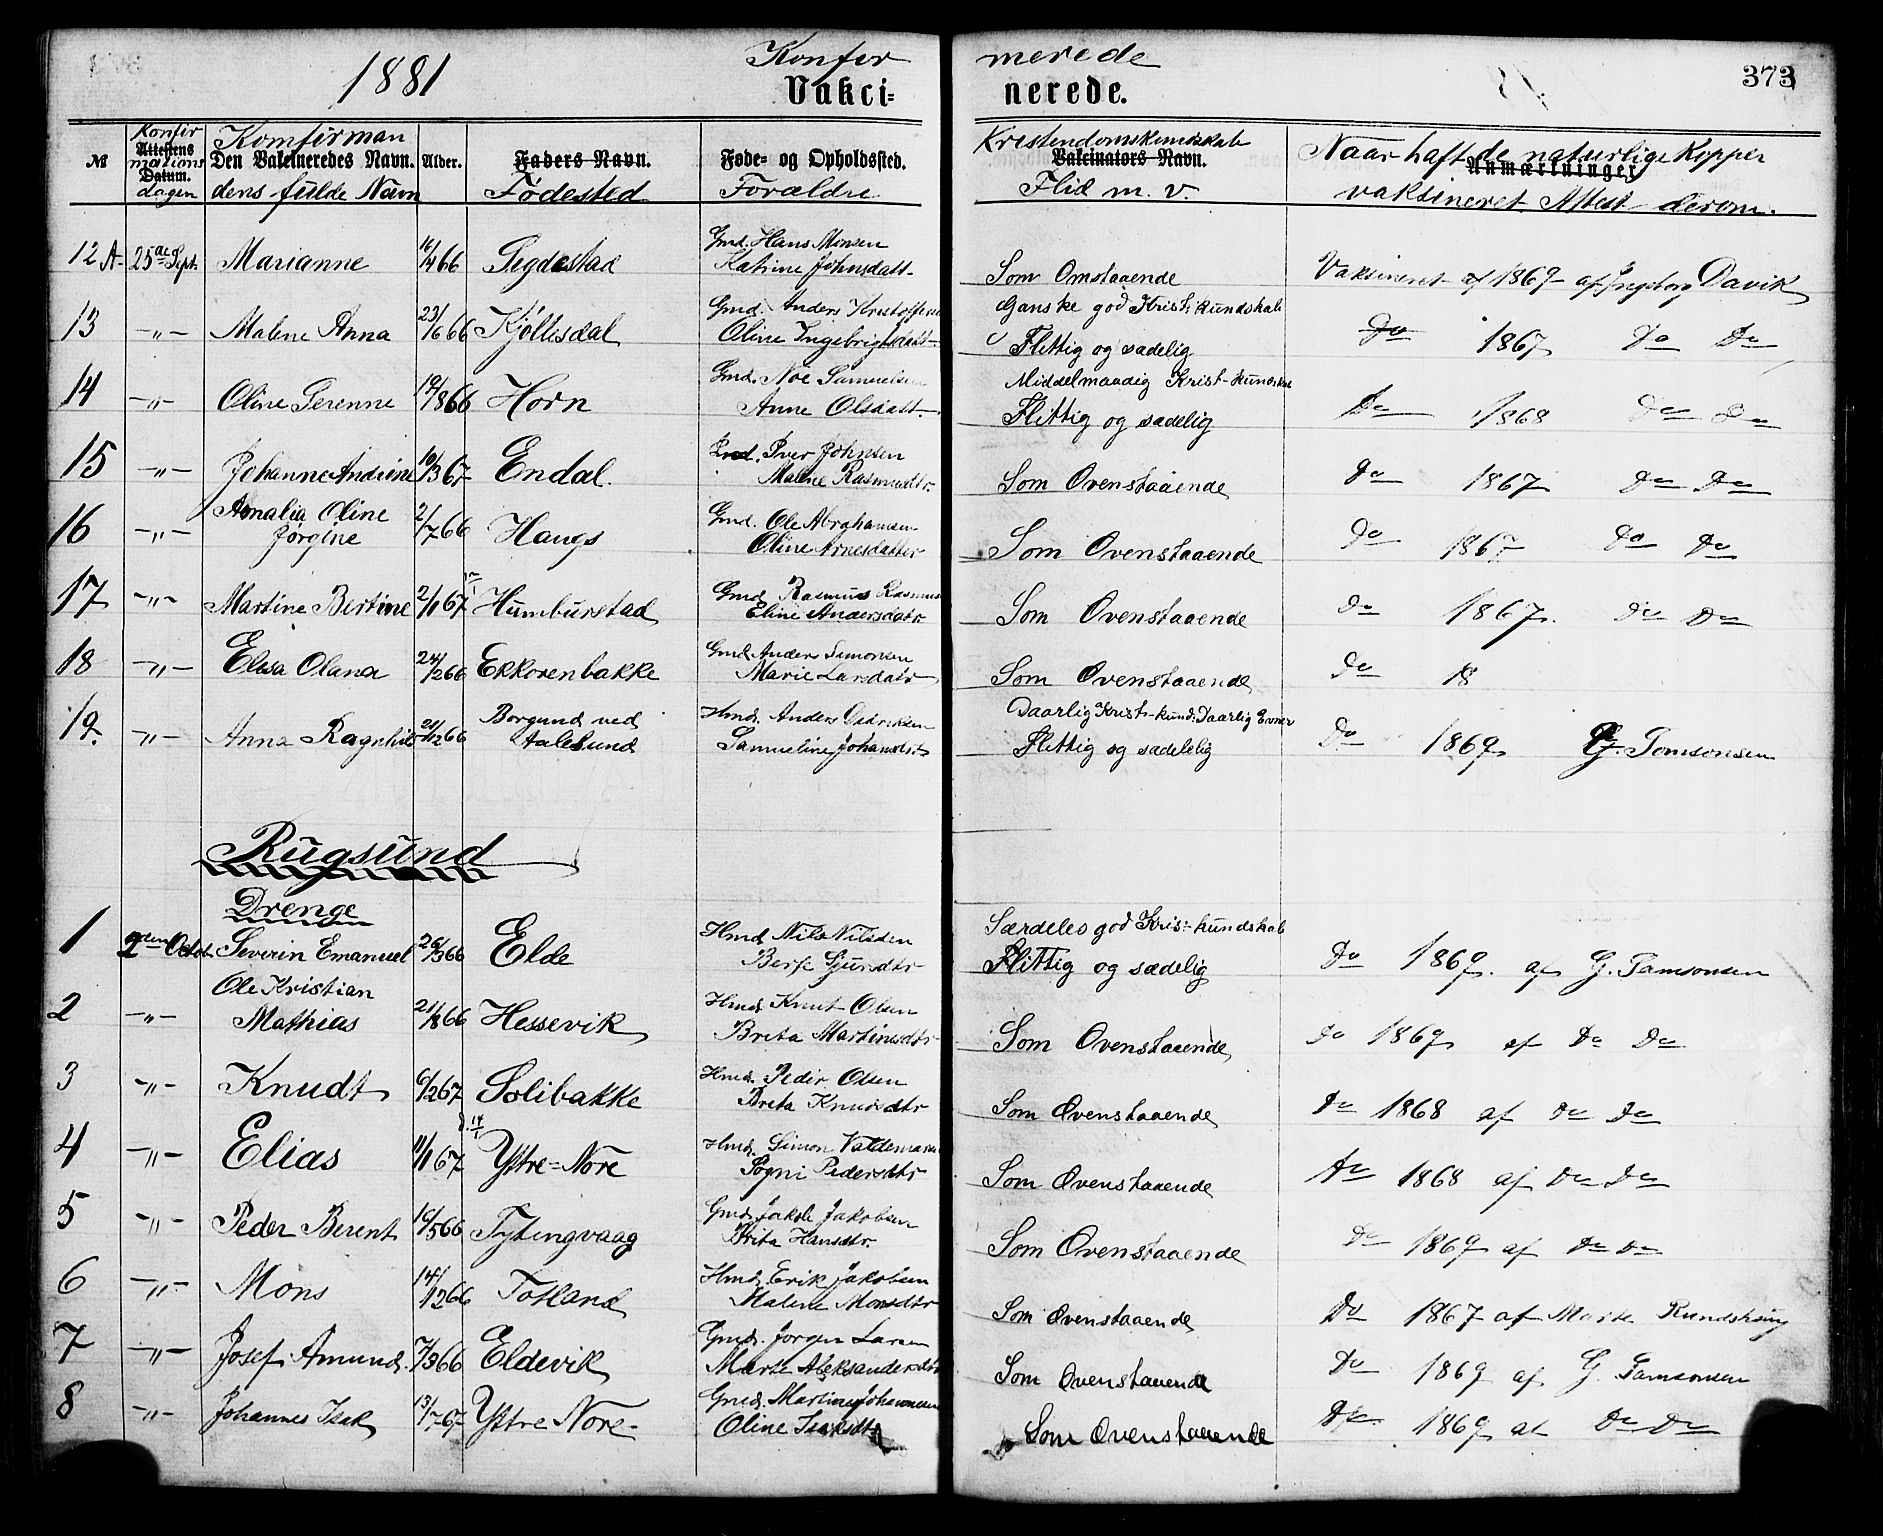 1881
Konfir
merede
373
Vakci=
nerede.
Konfir
mations
dagen
Attestens Datum.
№
Komfirman
Den Vakcineredes Navn.
dens fulde Navn
Alder.
Faders Navn.
Fødested
Føde- og Opholdssted.
Forældre
Kristendomskundskab
Vakcinators Navn.
Flid m. v.
Naar haft de naturlige Kopper
Anmærkninger
vaksineret. Attest derom.
12 A. 25de Sept. Marianne 16/4 66 Segdestad Gmd. Hans Monsen
Katrine Johnsdatt. Som Omstaaende Vaksineret af 1869 af Ingeborg Davik
13 -"- Malene Anna 23/10 66 Kjøllesdal Gmd. Anders Kristoffersen Ganske god Krist: kundskab
Oline Ingebrigtsdatt. Flittig og sædelig Do 1867 Do Do
14 -"- Oline Serenne 19/8 66 Horn Gmd. Noe Samuelsen Middelmaadig Krist-kundskab
Anne Olsdatt. Flittig og sædelig Do 1868 Do Do
15 -"- Johanne Andrine 10/3 67 Endal. Iver Johnsen
Malene Rasmusdtr. Som Ovenstaaende Do 1867 Do Do
16 -"- Amalia Oline
Jørgine 2/7 66 Haugs Gmd. Ole Abrahamsen
Oline Arnesdatter Som Ovenstaaende Do 1867 Do Do
17 -"- Martine Bertine 2/1 67 Humburstad Gmd. Rasmus Rasmus
Eline Andersdatr Som Ovenstaaende Do 1867. Do Do
18 -"- Elisa Olana 24/2 66 Ekkorenbakke Gmd. Anders Simonsen
Marie Larsdatr Som Ovenstaaende Do 18
19. -"- Anna Ragnhild 21/12 66 Borgund ved
Aalesund Hmd. Anders Didriksen
Samueline Johansdtr Daarlig Krist-kund: Daarlig Evner
Flittig og sædelelig Do 1869 G. Tomsonsen
Rugsund
Drenge
1 2den Octob. Severin Emanuel 26/3 66 Elde Hmd. Nils Nilsden Særdeles god Kris: kundskab
Berse Sjursdtr Flittig og sædelig Do 1869. af G. Tamsonsen
2 -"- Ole Kristian
Mathias 21/8 66 Hessevik Hmd. Knut Olsen
Brita Martinesdtr Som Ovenstaaende Do 1869 af Do Do
3 -"- Knudt 6/2 67 Solibakke Hmd. Peder Olsen
Brita Knudsdtr Som Ovenstaaende Do 1868 af Do Do
4 -"- Elias 11/1 67 d. 17/1 Ystre=Nore Hmd. Simon Valdemarsen
Sogni Pedersdtr Som Ovenstaaende Do 1868 af Do Do
5 -"- Peder Berent 16/5 66 Tytingvaag Gmd. Jakob Jakobsen
Brita Hansdtr. Som Ovenstaaende Do 1869 af Do Do
6 -"- Mons 14/12 66 Totland Hmd. Erik Jakobsen
Malene Monsdtr Som Ovenstaaende Do 1867 af Marte Rundshaug
7 -"- Josef Amund. 7/3 66 Eldevik Gmd. Jørgen Larsen
Marte Aleksandersdtr Som Ovenstaaende Do 1869 af G. Tamsonsen
8 -"- Johannes Isak 13/7 67 Ystre Nore- Gmd. Martines Johannesen
Oline Isaksdtr Som Ovenstaaende Do 1869 af Do Do